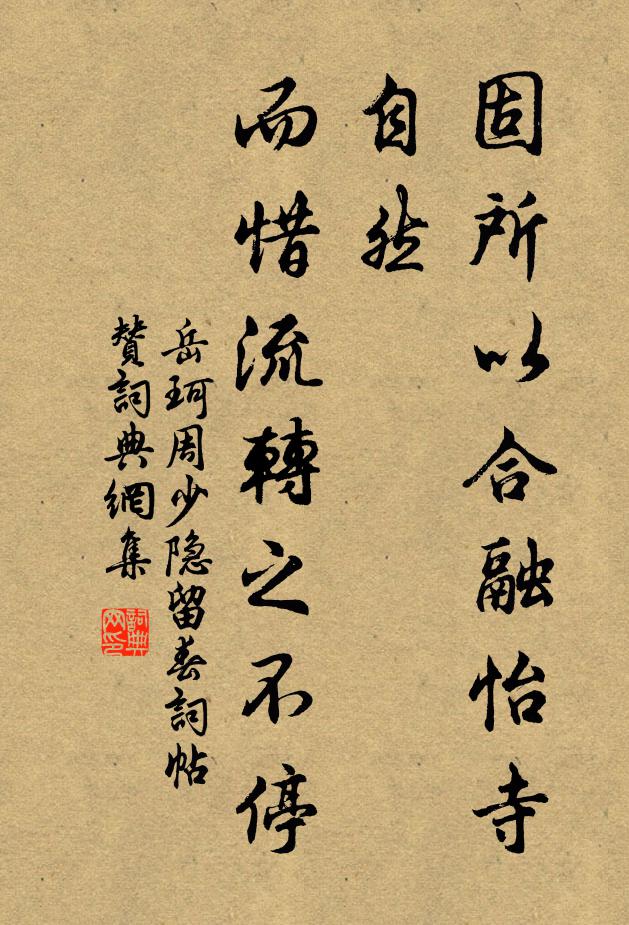 固所以合融怡寺
自然
而惜流轉之不停
岳珂周少隐留春詞帖
贊詞典網集
詞典网印